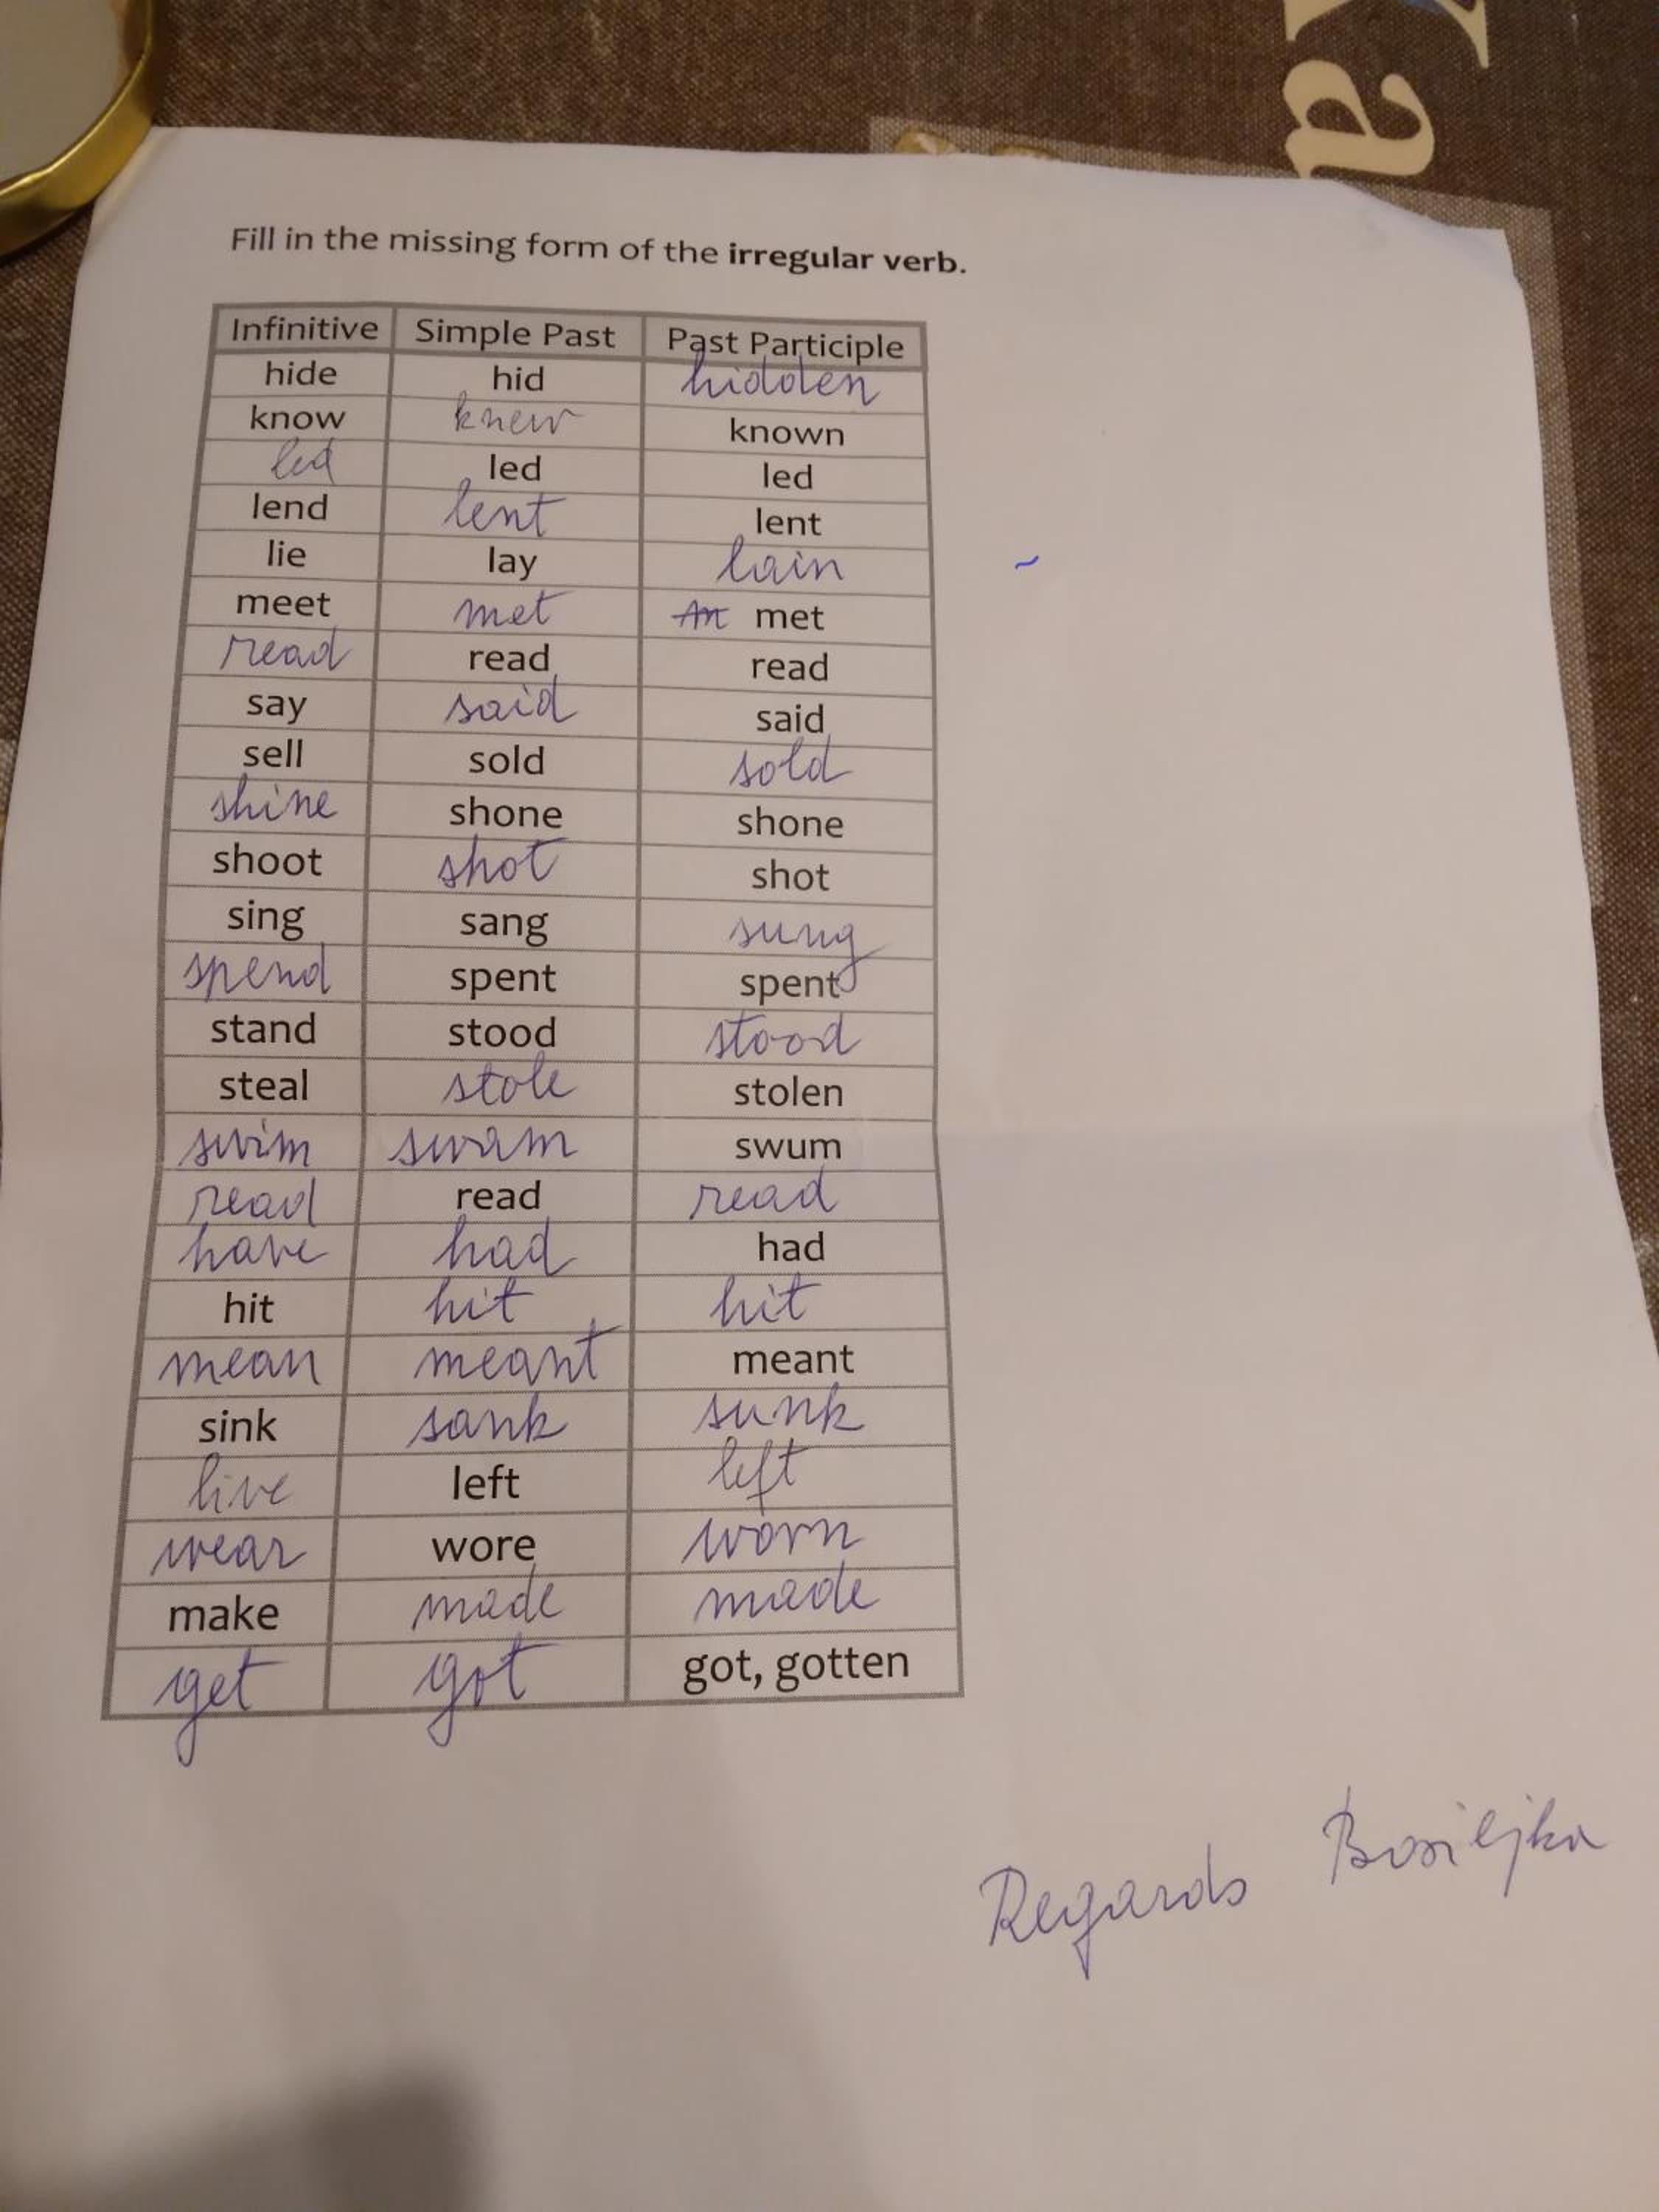 Ka
Fill in the missing form of the irregular verb.
Infinitive Simple Past Past Participle
hide hid hidden
know knew known
led led led
lend lent lent
lie lay lain
meet met met
read read read
say said said
sell sold sold
shine shone shone
shoot shot shot
sing sang sung
spend spent spent
stand stood stood
steal stole stolen
swim swam swum
read read read
have had had
hit hit hit
mean meant meant
sink sank sunk
live left left
wear wore worn
make made made
get got got, gotten
Regards Bosiljka